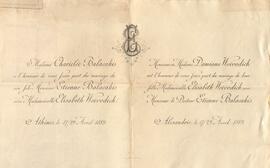 Madame Chariclée Balascakis
a l'honneur de vous faire part du mariage de
son fils Monsieur Etienne Balascakis
avec Mademoiselle Elisabeth Woevodich
Athènes, le 17/29 Avril 1888.
Monsieur & Madame Damiano Woevodich
ont l'honneur de vous faire part du mariage de leur
fille Mademoiselle Elisabeth Woevodich avec
Monsieur le Docteur Etienne Balascakis
Alexandrie, le 17/29 Avril